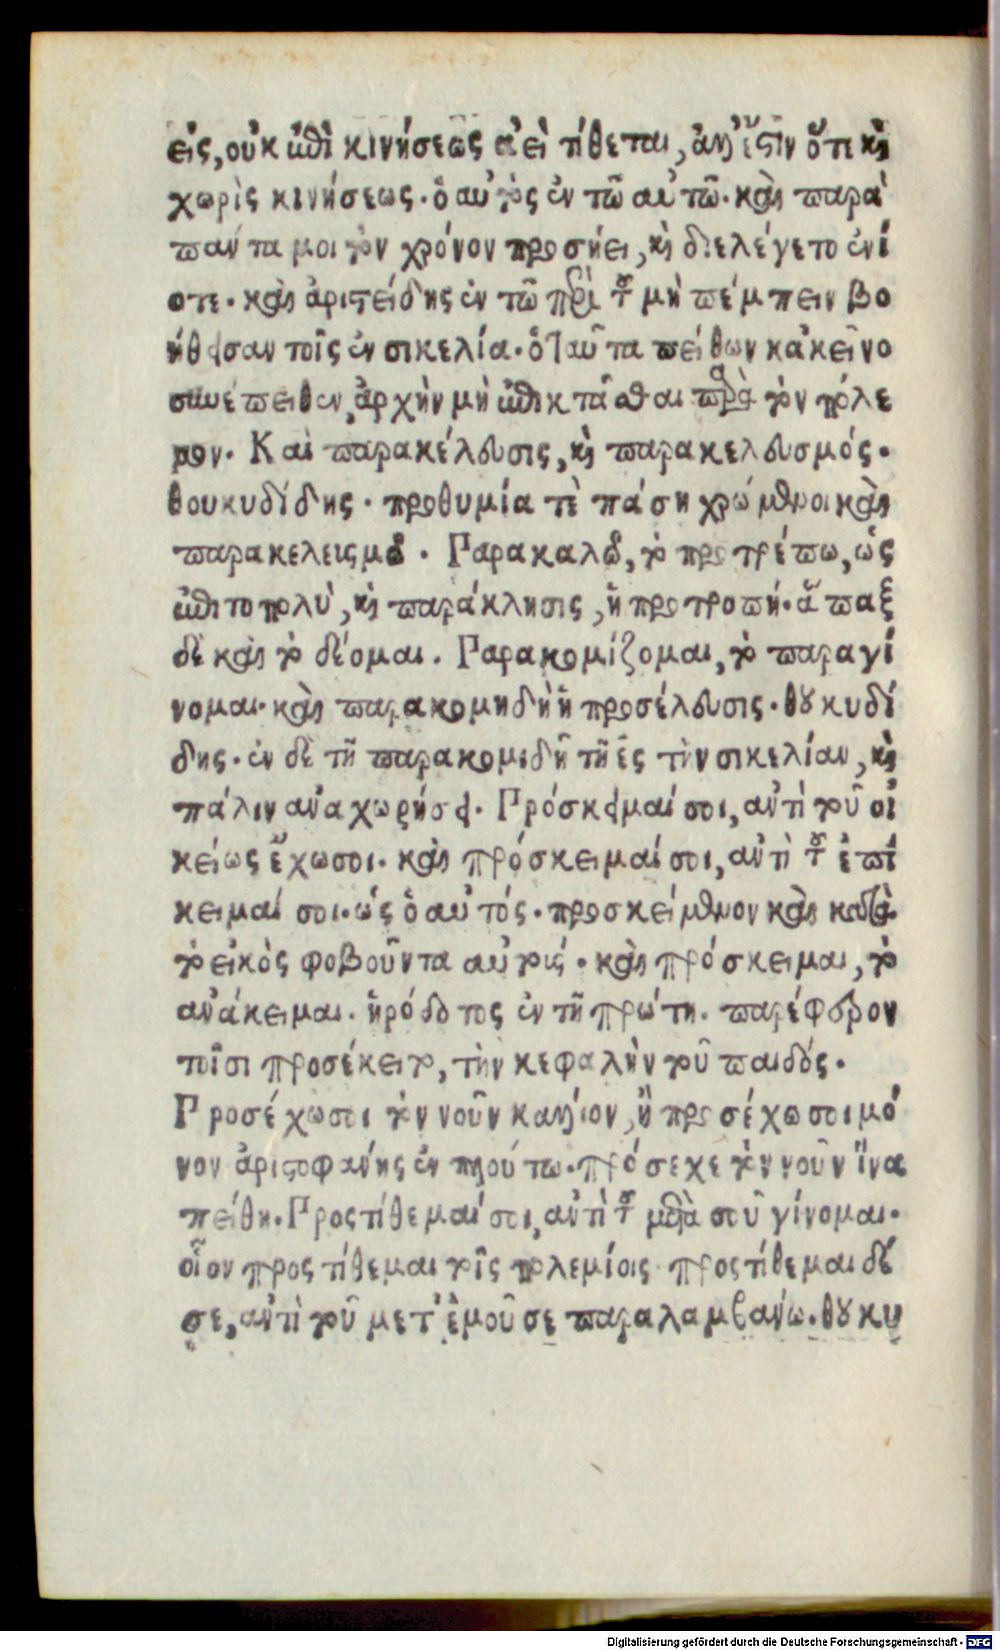 εις, οὐκ ἐπὶ κινήσεως ἀεὶ τίθεται, ἀλλ' ἔστιν ὅτι καὶ
χωρὶς κινήσεως. ὁ αὐτὸς ἐν τῶ αὐτῶ. καὶ παρὰ
πάντα μοι τὸν χρόνον προσήει, καὶ διελέγετο ἐνί
οτε. καὶ ἀριστείδης ἐν τῶ περὶ τοῦ μὴ πέμπειν βο
ήθειαν τοῖς ἐν σικελία. ὁ ταῦτα πείθων κἀκεῖνο
συνέπειθεν, ἀρχὴν μὴ ἐπικτᾶσθαι παρὰ τὸν πόλε
μον. Καὶ παρακέλευσις, καὶ παρακελευσμός.
θουκυδίδης. προθυμία τὲ πάση χρώμενοι καὶ
παρακελεισμῶ. Παρακαλῶ, τὸ προτρέπω, ὡς
ἐπιτοπολὺ, καὶ παράκλησις, ἡ προτροπή. ἅπαξ
δὲ καὶ τὸ δέομαι. Παρακομίζομαι, τὸ παραγί
νομαι. καὶ παρακομηδὴ ἡ προσέλευσις. θουκυδί
δης. ἐν δὲ τῆ παρακομιδῆ τῆ ἐς τὴν σικελίαν, καὶ
πάλιν ἀναχωρήσει. Πρόσκειμαί σοι, ἀντὶ τοῦ οἰ
κείως ἔχω σοι. καὶ πρόσκειμαί σοι, ἀντὶ τοῦ ἐπί
κειμαί σοι. ὡς ὁ αὐτός. προσκείμενον καὶ κατὰ
τὸ εἰκὸς φοβοῦντα αὐτοις. καὶ πρόσκειμαι, τὸ
ἀνάκειμαι. ἡρόδοτος ἐν τῆ πρώτη. παρέφερον
τοῖσι προσέκειτο, τὴν κεφαλὴν τοῦ παιδός.
Προσέχω σοι τὸν νοῦν κάλλιον, ἢ προσέχω σοι μό
νον ἀριστοφάνης ἐν πλούτω. πρόσεχε τὸν νοῦν ἵνα
πείθη. Προςτίθεμαί σοι, ἀντὶ τοῦ μετὰ σοῦ γίνομαι.
οἷον προςτίθεμαι τοῖς πολεμίοις προςτίθεμαι δέ
σε, ἀντὶ τοῦ μετ' ἐμοῦ σε παραλαμβάνω. θουκυ
Digitalisierung gefördert durch die Deutsche Forschungsgemeinschaft - DFG